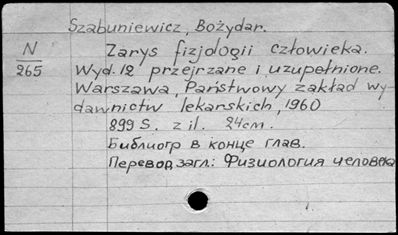 Szabuniewicz, Bożydar.
N Zarys fizjologii człowieka.
265 Wyd. 12 przejrzane i uzupełnione.
Warszawa, Państwowy zakład wy-
dawnictw lekarskich, 1960
899 S. z il. 24cm.
Библиогр в конце глав.
Перевод загл.: Физиология человека